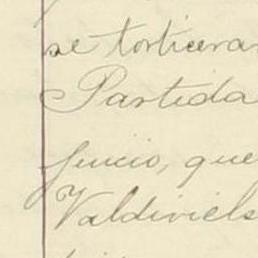 se torticera
Partida
juicio, que
Valdiviels